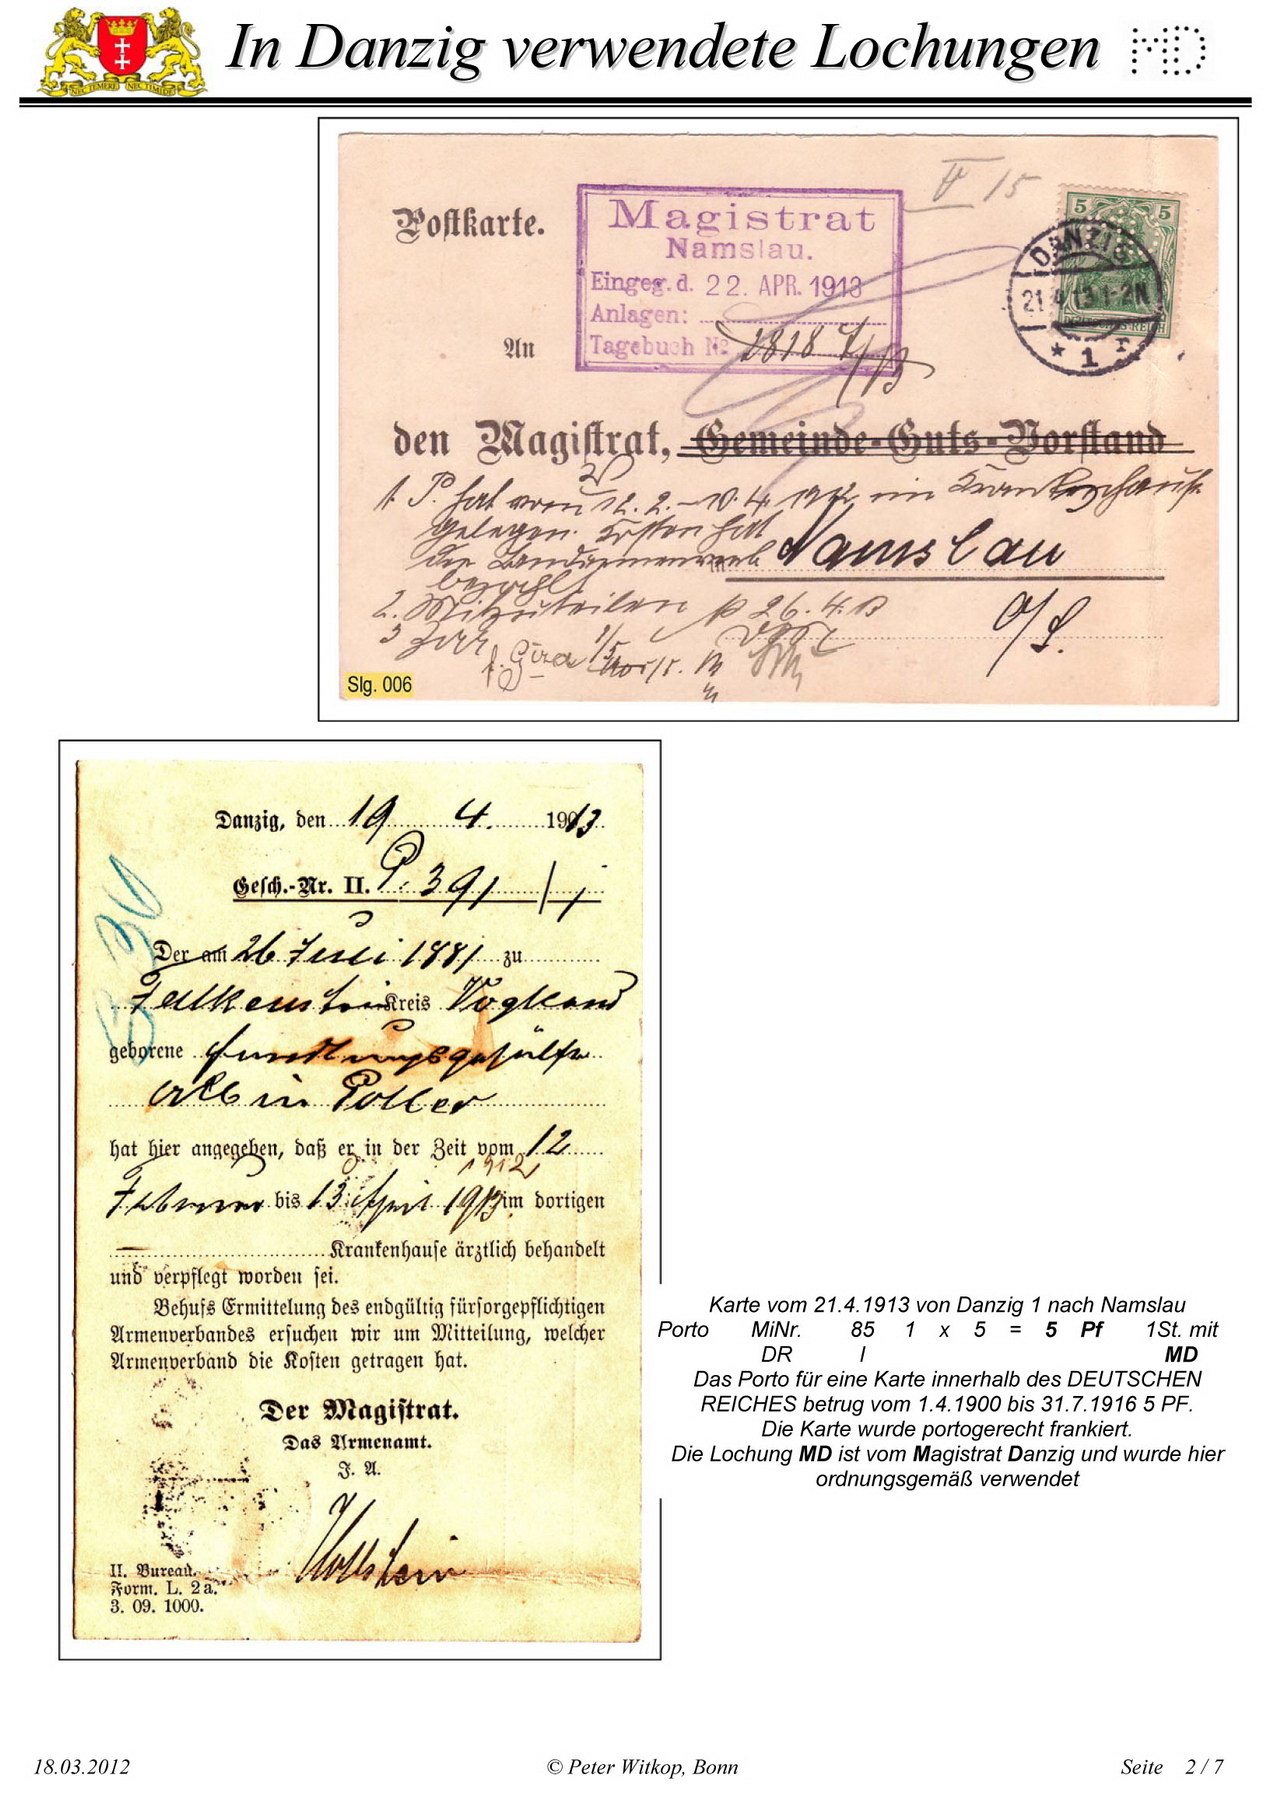 In Danzig verwendete Lochungen MD
NEC TEMERE NEC TIMIDE
Postkarte.
Magistrat
Namslau.
Eingeg. d. 22. APR. 1913
Anlagen:
Tagebuch № 2818
V/15
5 5
DANZIG
21.4.13.1-2N
DEUTSCHES REICH
* 1 r
An
den Magistrat, Gemeinde-Guts-Vorstand
1. P. hat vom 12.2.-10.4.1912 im Krankenhause
gelegen. Kosten hat
der Landarmenverb.
bezahlt
Namslau
2. Mitzuteilen 26.4.13
3
O/S.
Slg. 006
Danzig, den 19 4. 1913
Gesch.-Nr. II. P. 391 /1
Der am 26 Juli 1881 zu
Falkenstein Kreis Vogtland
geborene Handlungsgehülfe
Albin Poller
hat hier angegeben, daß er in der Zeit vom 12
1912
Februar bis 13 April 1913 im dortigen
Krankenhause ärztlich behandelt
und verpflegt worden sei.
Behufs Ermittelung des endgültig fürsorgepflichtigen
Armenverbandes ersuchen wir um Mitteilung, welcher
Armenverband die Kosten getragen hat.
Der Magistrat.
Das Armenamt.
J. A.
II. Bureau.
Form. L. 2a.
3. 09. 1000.
Karte vom 21.4.1913 von Danzig 1 nach Namslau
Porto MiNr. 85 1 x 5 = 5 Pf 1St. mit
DR I MD
Das Porto für eine Karte innerhalb des DEUTSCHEN
REICHES betrug vom 1.4.1900 bis 31.7.1916 5 PF.
Die Karte wurde portogerecht frankiert.
Die Lochung MD ist vom Magistrat Danzig und wurde hier
ordnungsgemäß verwendet
18.03.2012 © Peter Witkop, Bonn Seite 2 / 7